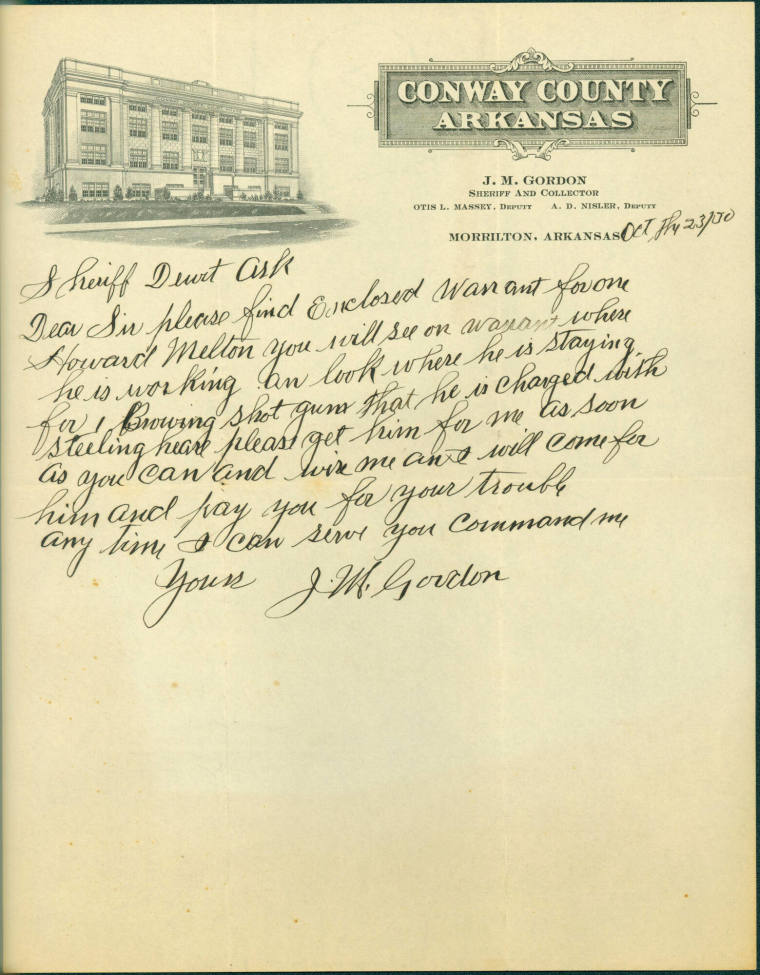 CONWAY COUNTY
ARKANSAS
J. M. GORDON
SHERIFF AND COLLECTOR
OTIS L. MASSEY, DEPUTY A. D. NISLER, DEPUTY
MORRILTON, ARKANSAS Oct, thy 23/30
Sheriff Dewit Ark
Dear Sir please find Enclosed Warrant for one
Howard Melton you will see on warrant where
he is working an look where he is staying
for 1 Browing shot gun that he is charged with
steeling heare pleas get him for me as soon
as you can and wire me an I will come for
him and pay you for your trouble
any time I can serve you command me
Yours J. M. Gordon